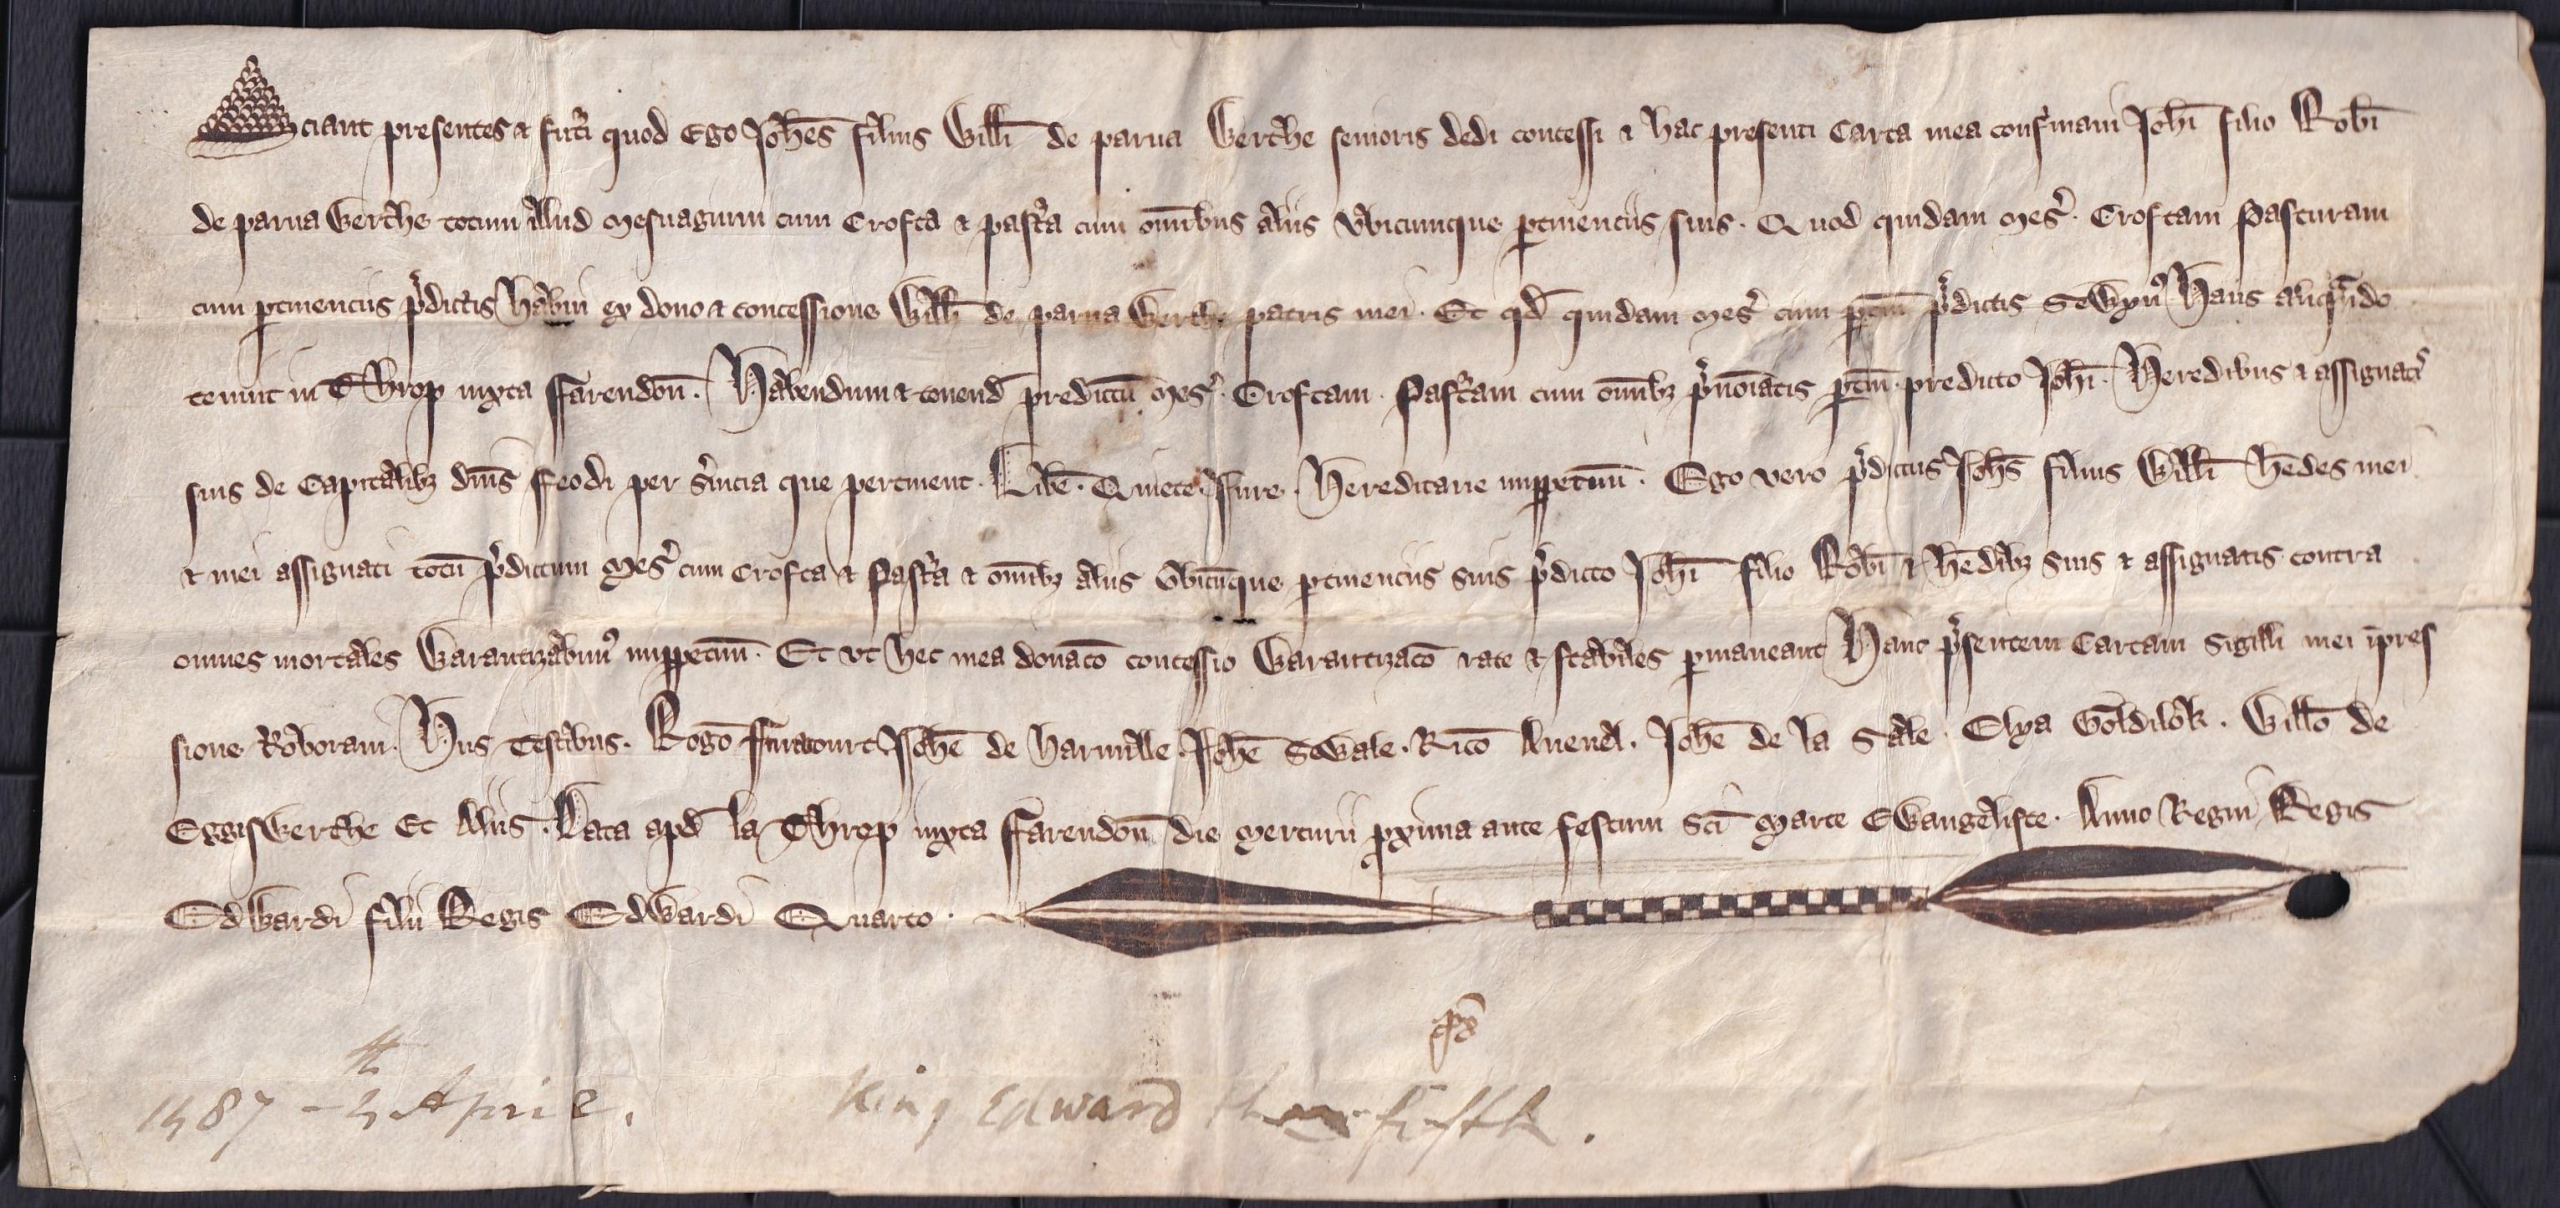 Sciant presentes & fut'i quod Ego Joh̄es filius Willī de parua Werthe senioris dedi concessi & hac presenti Carta mea confirmaui Joh̄i filio Rob̄i
de parua Werthe totum illud Mesuagium cum Crofta & past'a cum om̄ibus aliis vbicumque p̱tinenciis suis . Quod quidam Mes' . Croftam Pasturam
cum p̱tinenciis p'dictis Habui ex dono & concessione Willī de parua Werthe patris mei . Et qd̄ quidam Mes' cum p̱tin̄ p'dictis Sewyn' Haus aliq'ndo
tenuit in Throp iuxta ffarendon̄ . Habendum & tenend̄ predictū Mes' . Croftam . Past'am cum om̄ibȝ p'no̅iatis p̱tin̄ . predicto Joh̄i . Heredibus & assignat'
suis de Capitalibȝ dn̄is feodi per s'uicia que pertinent . Lib̄e . Quiete . Jure . Hereditarie inp̱petuū . Ego vero p'dictus Joh̄s filius Willī h̄edes mei
& mei assignati totū p'dictum Mes' cum Crofta & Past'a & om̄ibȝ aliis vbicūque p̱tinenciis suis p'dicto Joh̄i filio Rob̄i & h̄edibȝ suis & assignatis contra
omnes mortales Warantizabim' inp̱petuū . Et vt hec mea donac̄o concessio Warantizac̄o rate & stabiles p̱maneant Hanc p'sentem Cartam Sigilli mei īpres
sione Roboraui . Hiis Testibus . Rog̅o Joh̄e de Harnulle . Joh̄e Sewale . Ric̄o Auenel . Joh̄e de la Sale . Elya Goldilok . Will̄o de
Eggiswerthe Et Aliis . Data apd̄ la Throp iuxta ffarendon̄ die Mercurii p̱xima ante festum Sc̄i Marce Ewangeliste . Anno Regni Regis
Edwardi filii Regis Edwardi Quarto .
1487 - April .
King Edward the fifth .